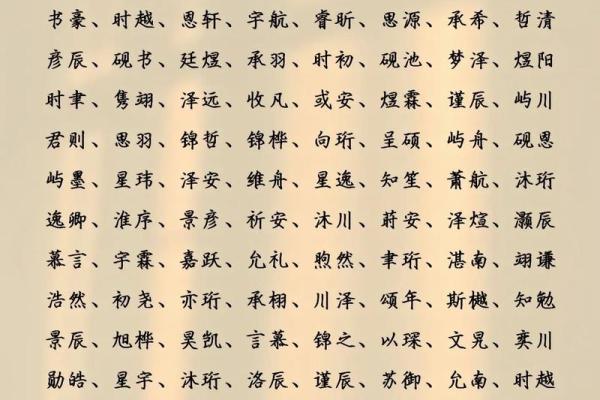 书豪、时越、恩轩、宇航、睿昕、思源、承希、哲清
彦辰、砚书、廷煜、承羽、时初、砚池、梦泽、煜阳
时聿、隽翊、泽远、收凡、或安、煜霖、谨辰、屿川
君则、思羽、锦哲、锦桦、向珩、呈硕、屿舟、砚恩
屿墨、星玮、泽安、维舟、星逸、知笙、萧航、沐珩
逸卿、淮序、景彦、祈安、沐川、蔚安、泽煊、灏辰
慕言、宇霖、嘉跃、允礼、煦然、聿珩、湛南、翊谦
浩然、初尧、亦珩、承栩、川泽、颂年、斯樾、知勉
景辰、旭桦、昊凯、言慕、锦之、以琛、文晃、奕川
勋皓、星宇、沐珩、洛辰、谨辰、苏御、允南、时越